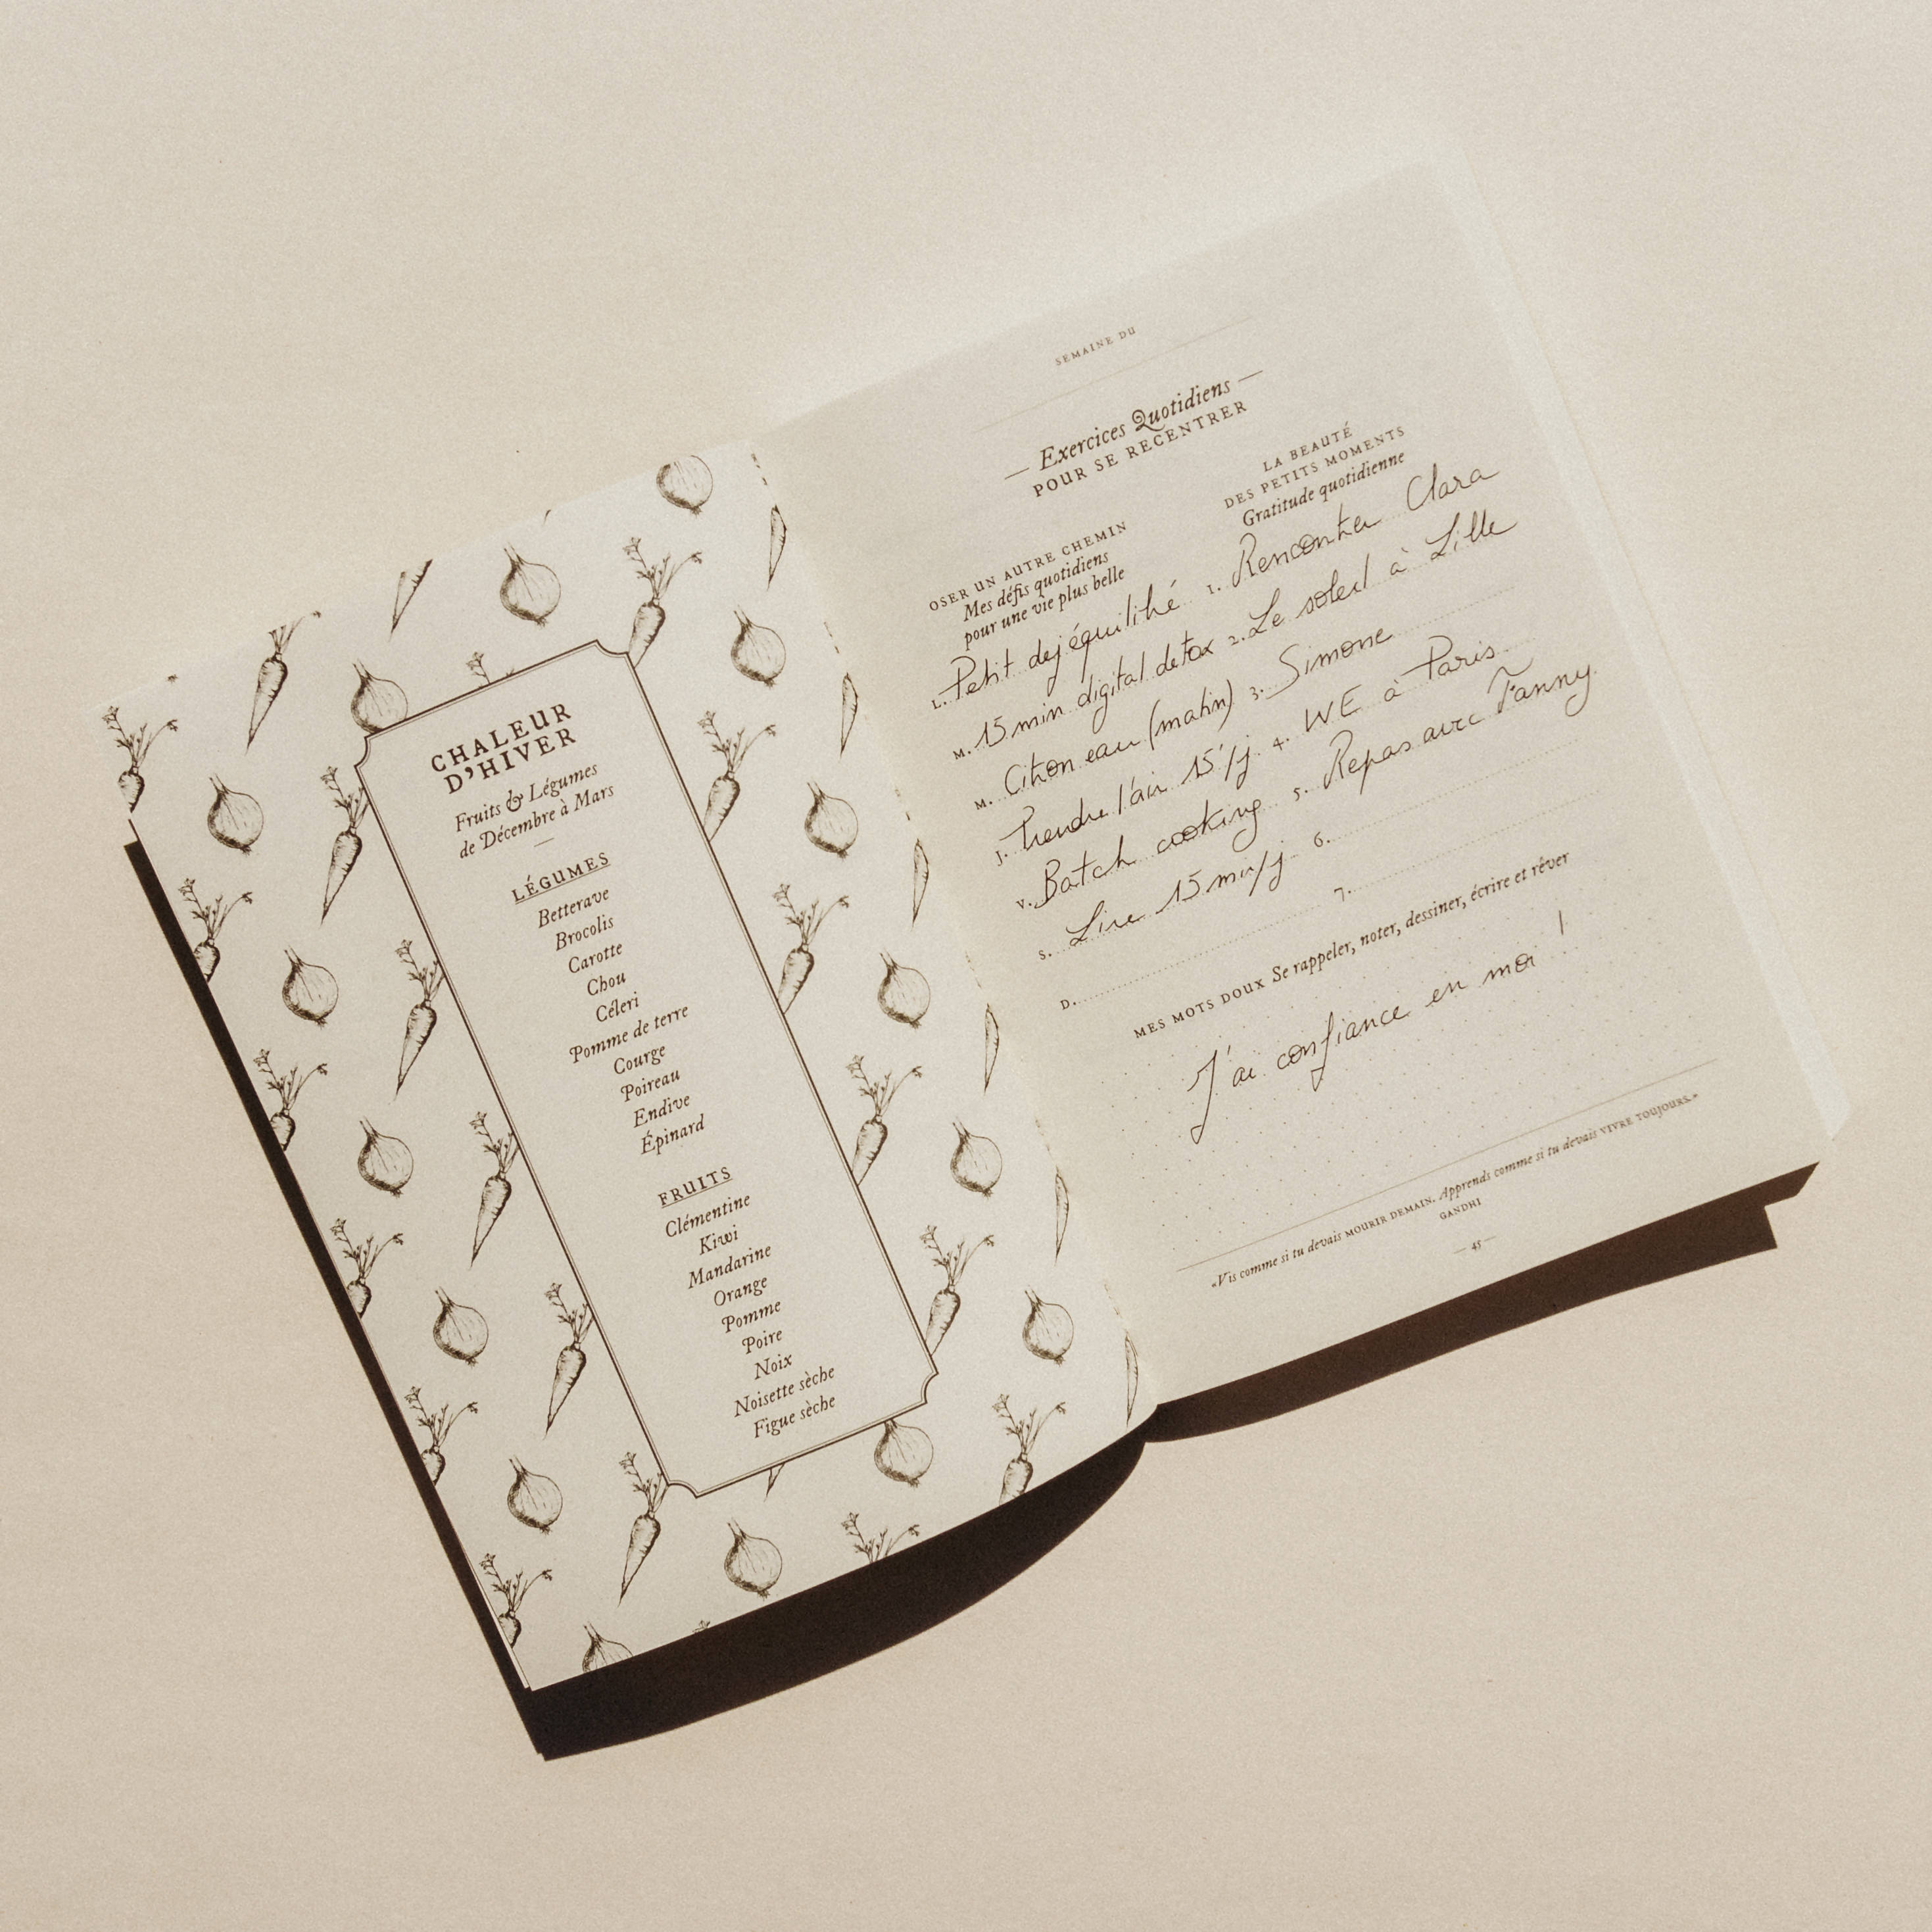 CHALEUR
D'HIVER
Fruits & Légumes
de Décembre à Mars
LÉGUMES
Betterave
Brocolis
Carotte
Chou
Céleri
Pomme de terre
Courge
Poireau
Endive
Épinard
FRUITS
Clémentine
Kiwi
Mandarine
Orange
Pomme
Poire
Noix
Noisette sèche
Figue sèche
SEMAINE DU
— Exercices Quotidiens —
POUR SE RECENTRER
OSER UN AUTRE CHEMIN
Mes défis quotidiens
pour une vie plus belle
L. Petit dej équilibé
M. 15 min digital detox
M. Citron eau (matin)
J. Prendre l'air 15'/j
V. Batch cooking
S. Lire 15 min/j
D.
LA BEAUTÉ
DES PETITS MOMENTS
Gratitude quotidienne
1. Rencontrer Clara
2. Le soleil à Lille
3. Simone
4. WE à Paris
5. Repas avec Fanny
6.
7.
MES MOTS DOUX Se rappeler, noter, dessiner, écrire et rêver
J'ai confiance en moi !
«Vis comme si tu devais MOURIR DEMAIN. Apprends comme si tu devais VIVRE TOUJOURS.»
GANDHI
— 45 —